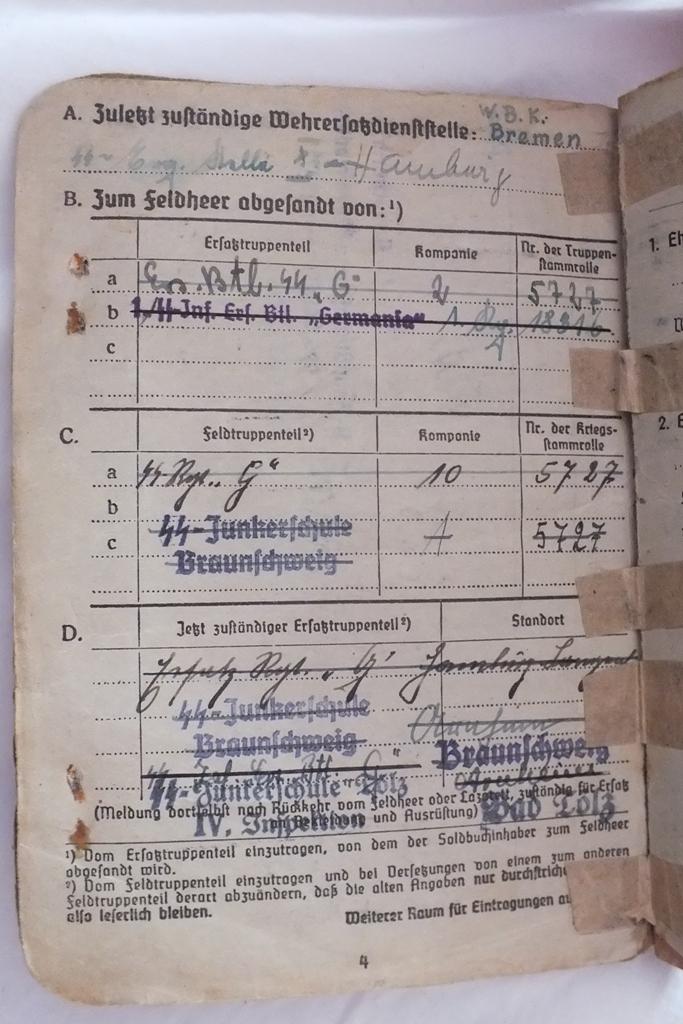 A. Zuletzt zuständige Wehrersatzdienststelle: W.B.K. Bremen
Hamburg
B. Zum Feldheer abgesandt von:¹)
Ersatztruppenteil Kompanie Nr. der Truppen-
stammrolle
a Ers. Btl. SS „G" 2 5727
b 1./SS-Inf. Ers. Btl. „Germania" 18316
c
C. Feldtruppenteil²) Kompanie Nr. der Kriegs-
stammrolle
a SS Rgt. „G" 10 5727
b
SS-Junkerschule
c 5727
Braunschweig
D. Jetzt zuständiger Ersatztruppenteil²) Standort
Ersatz Rgt. „G" Hamburg
SS-Junkerschule
Braunschweig Braunschweig
SS-Junkerschule Tölz
(Meldung dortselbst nach Rückkehr vom Feldheer oder Lazarett, zuständig für Ersatz
an Bekleidung und Ausrüstung)
IV. Inspektion Bad Tölz
¹) Vom Ersatztruppenteil einzutragen, von dem der Soldbuchinhaber zum Feldheer
abgesandt wird.
²) Vom Feldtruppenteil einzutragen und bei Versetzungen von einem zum anderen
Feldtruppenteil derart abzuändern, daß die alten Angaben nur durchstrich
also leserlich bleiben.
Weiterer Raum für Eintragungen au
4
1. Eh
2. E